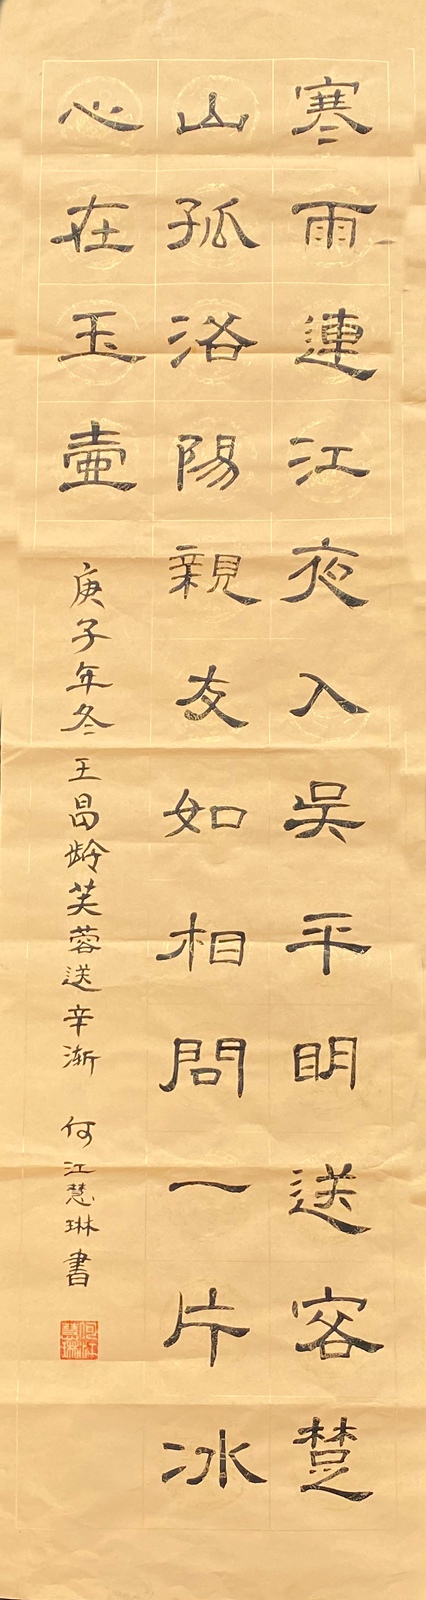 寒雨連江夜入吳平明送客楚
山孤洛陽親友如相問一片冰
心在玉壺
庚子年冬王昌龄芙蓉送辛渐 何江慧琳書
何江慧琳